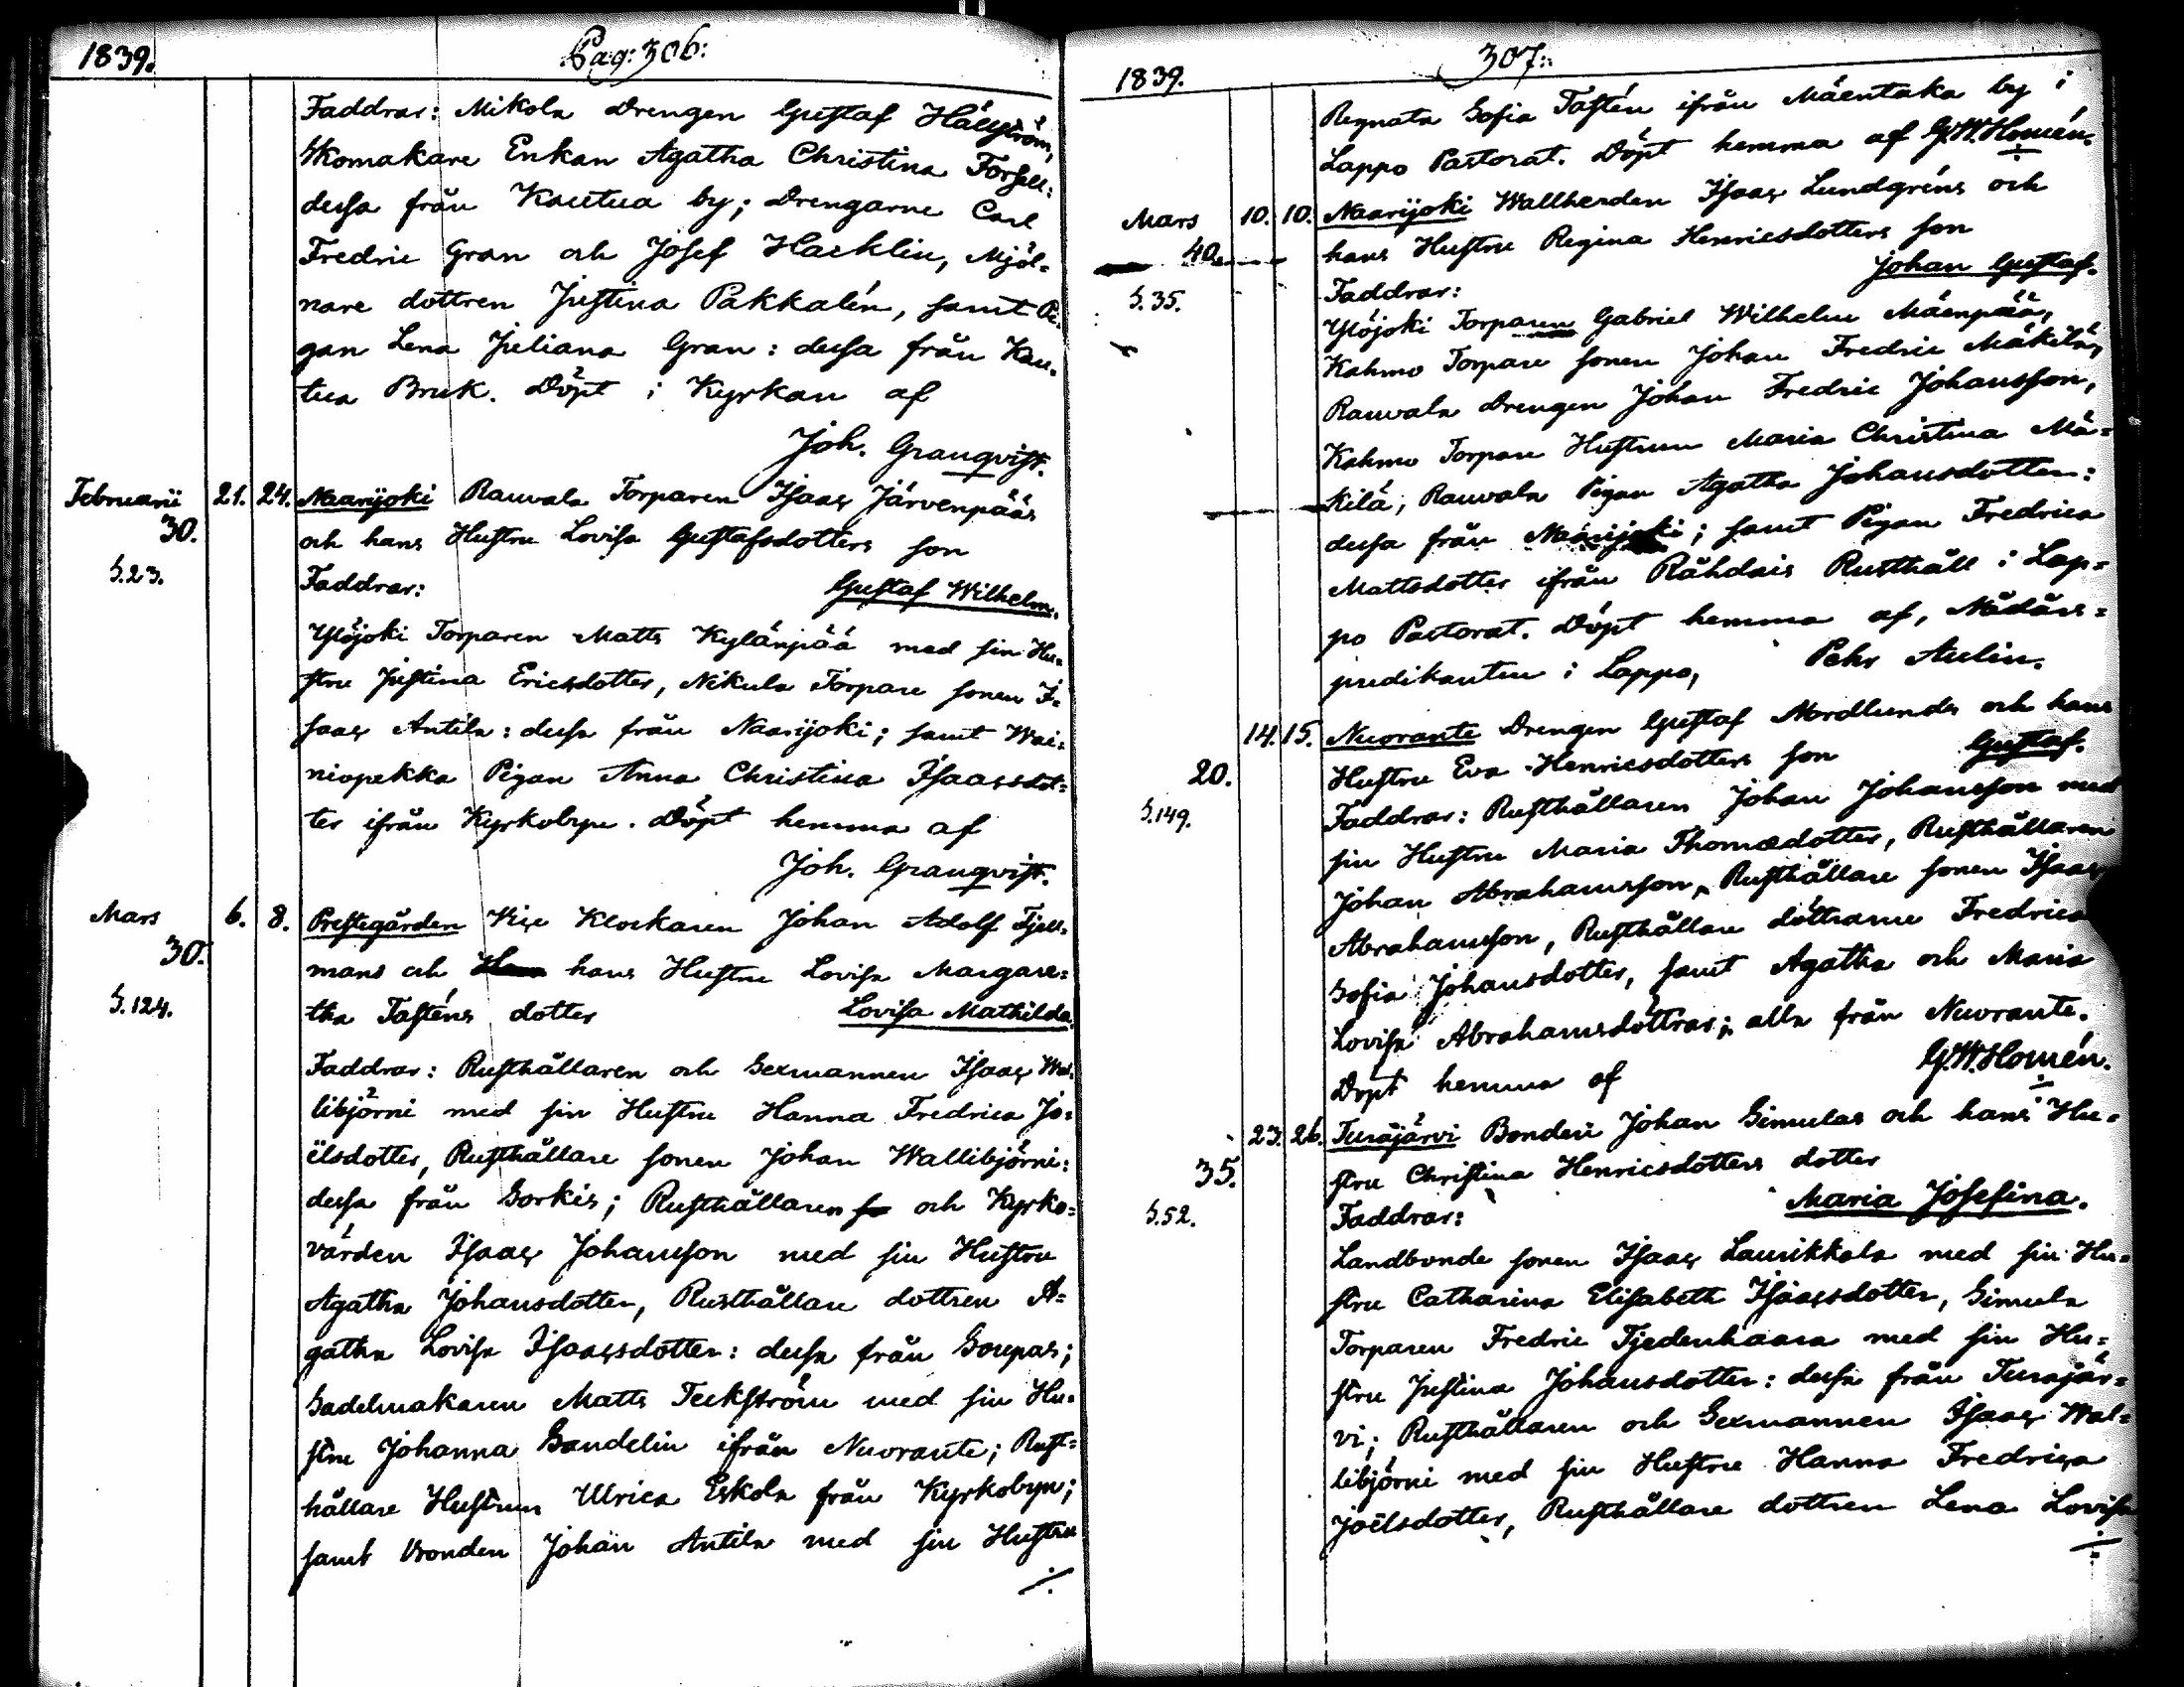 1839.
Pag: 306:
Faddrar: Mikola Drengen Gustaf Hällström,
Skomakare Enkan Agatha Christina Forsell:
dessa från Kautua by; Drengarne Carl
Fredric Gran och Josef Hacklin, Mjöl=
nare dottren Justina Pakkalén, samt Pi=
gan Lena Juliana Gran: dessa från Kau=
tua Bruk. Döpt i Kyrkan af
Joh. Granqvist.
Februarii 21. 24. Naarijoki Rauvala Torparen Isaac Järvenpääs
30. och hans Hustru Lovisa Gustafsdotters son
S.23. Faddrar: Gustaf Wilhelm.
Ylöjoki Torparen Matts Kylänpää med sin Hu=
stru Justina Ericsdotter, Nikula Torpare sonen I=
saac Antila: dessa från Naarijoki; samt Wai=
niopekka Pigan Anna Christina Isaacsdot=
ter ifrån Kyrkobyn. Döpt hemma af
Joh. Granqvist.
Mars 6. 8. Prestegården Vice Klockaren Johan Adolf Fjell=
30. mans och hans Hustru Lovisa Margare=
S.124. tha Tasténs dotter Lovisa Mathilda.
Faddrar: Rusthållaren och Sexmannen Isaac Wal=
libjörni med sin Hustru Hanna Fredrica Jo=
ëlsdotter, Rusthållare sonen Johan Wallibjörni:
dessa från Sorkis; Rusthållaren och Kyrko=
värden Isaac Johansson med sin Hustru
Agatha Johansdotter, Rusthållare dottren A=
gatha Lovisa Isaacsdotter: dessa från Soupas;
Sadelmakaren Matts Teckström med sin Hu=
stru Johanna Sandelin ifrån Nuoranti; Rust=
hållare Hustrun Ulrica Eskola från Kyrkobyn;
samt Bonden Johan Antila med sin Hustru
./.
1839.
307:
Regnata Sofia Tastén ifrån Mäentaka by i
Lappo Pastorat. Döpt hemma af G.W.Homén.
Mars 10. 10. Naarijoki Wallherden Isaac Lundgréns och
40. hans Hustru Regina Henricsdotters son
Johan Gustaf.
S.35. Faddrar:
Ylöjoki Torparen Gabriel Wilhelm Mäenpää,
Kahmo Torpare sonen Johan Fredric Mäkilä,
Rauvala Drengen Johan Fredric Johansson,
Kahmo Torpare Hustrun Maria Christina Mä=
kilä, Rauvala Pigan Agatha Johansdotter:
dessa från Naarijoki; samt Pigan Fredrica
Mattsdotter ifrån Rähdais Rusthåll i Lap=
po Pastorat. Döpt hemma af, Nådårs=
predikanten i Lappo, Pehr Aulin.
14. 15. Nuorante Drengen Gustaf Nordlunds och hans
Hustru Eva Henricsdotters son Gustaf.
20.
S.149. Faddrar: Rusthållaren Johan Johansson med
sin Hustru Maria Thomædotter, Rusthållaren
Johan Abrahamsson, Rusthållare sonen Isaac
Abrahamsson, Rusthållare döttrarne Fredrica
Sofia Johansdotter, samt Agatha och Maria
Lovisa Abrahamsdöttrar; alla från Nuorante.
Döpt hemma af G.W.Homén.
23. 26. Turajärvi Bonden Johan Simulas och hans Hu=
35. stru Christina Henricsdotters dotter
Maria Josefina.
S.52. Faddrar:
Landbonde sonen Isaac Laurikkala med sin Hu=
stru Catharina Elisabeth Isaacsdotter, Simula
Torparen Fredric Tjedenhaara med sin Hu=
stru Justina Johansdotter: dessa från Turajär=
vi; Rusthållaren och Sexmannen Isaac Wal=
libjörni med sin Hustru Hanna Fredrica
Joëlsdotter, Rusthållare dottren Lena Lovisa
./.